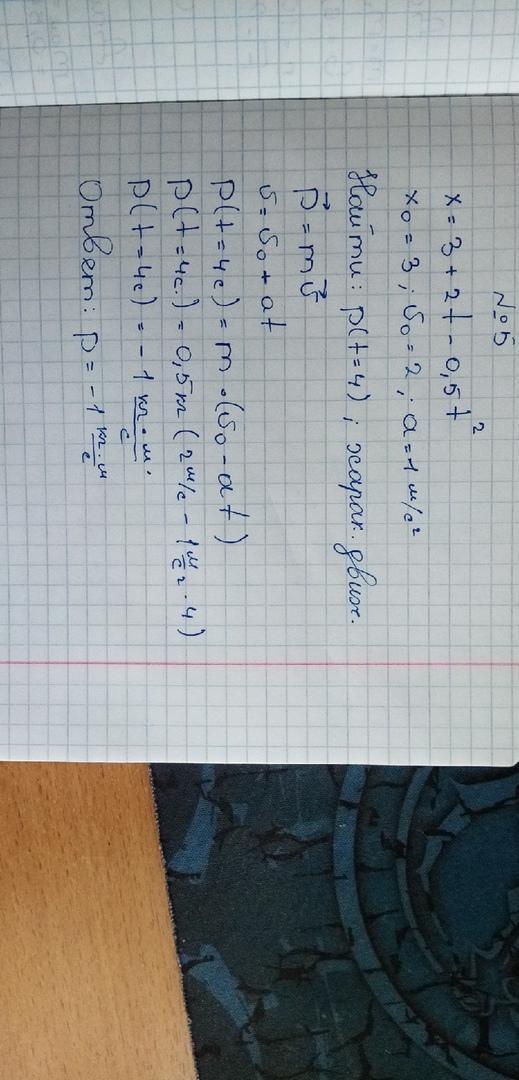 №5
x = 3 + 2t - 0,5t²
x₀ = 3 ; υ₀ = 2 ; a = 1 м/с²
Найти: p(t=4) ; харак. движ.
p⃗ = mυ⃗
υ = υ₀ + at
p(t=4с) = m · (υ₀ - at)
p(t=4с) = 0,5кг (2 м/с - 1 м/с² · 4)
p(t=4с) = -1 кг·м/с.
Ответ: p = -1 кг·м/с